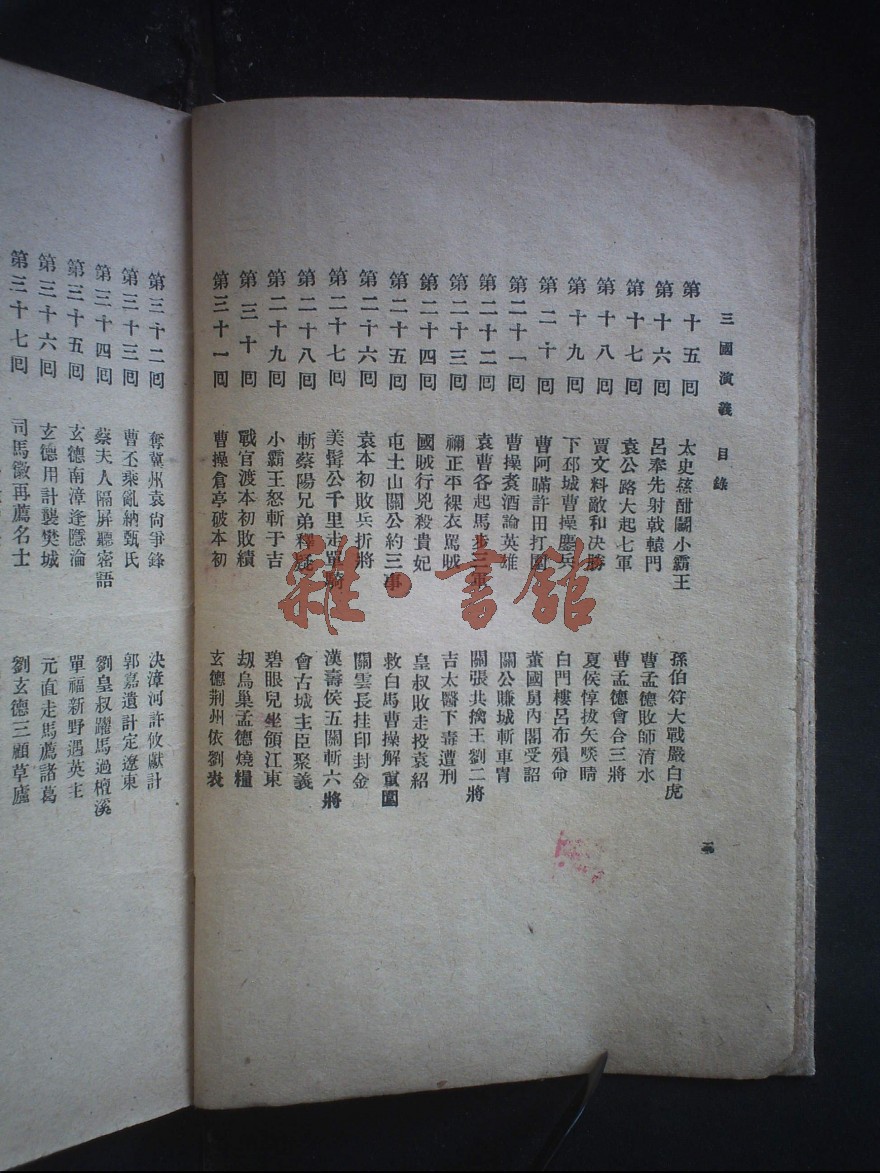 三國演義 目錄
第十五回 太史慈酣鬭小霸王 孫伯符大戰嚴白虎
第十六回 呂奉先射戟轅門 曹孟德敗師淯水
第十七回 袁公路大起七軍 曹孟德會合三將
第十八回 賈文和料敵決勝 夏侯惇拔矢啖睛
第十九回 下邳城曹操鏖兵 白門樓呂布殞命
第二十回 曹阿瞞許田打圍 董國舅內閣受詔
第二十一回 曹操煑酒論英雄 關公賺城斬車冑
第二十二回 袁曹各起馬步三軍 關張共擒王劉二將
第二十三回 禰正平裸衣罵賊 吉太醫下毒遭刑
第二十四回 國賊行兇殺貴妃 皇叔敗走投袁紹
第二十五回 屯土山關公約三事 救白馬曹操解重圍
第二十六回 袁本初敗兵折將 關雲長挂印封金
第二十七回 美髯公千里走單騎 漢壽侯五關斬六將
第二十八回 斬蔡陽兄弟釋疑 會古城主臣聚義
第二十九回 小霸王怒斬于吉 碧眼兒坐領江東
第三十回 戰官渡本初敗績 刼烏巢孟德燒糧
第三十一回 曹操倉亭破本初 玄德荆州依劉表
第三十二回 奪冀州袁尙爭鋒 決漳河許攸獻計
第三十三回 曹丕乘亂納甄氏 郭嘉遺計定遼東
第三十四回 蔡夫人隔屏聽密語 劉皇叔躍馬過檀溪
第三十五回 玄德南漳逢隱淪 單福新野遇英主
第三十六回 玄德用計襲樊城 元直走馬薦諸葛
第三十七回 司馬徽再薦名士 劉玄德三顧草廬
雜·書館